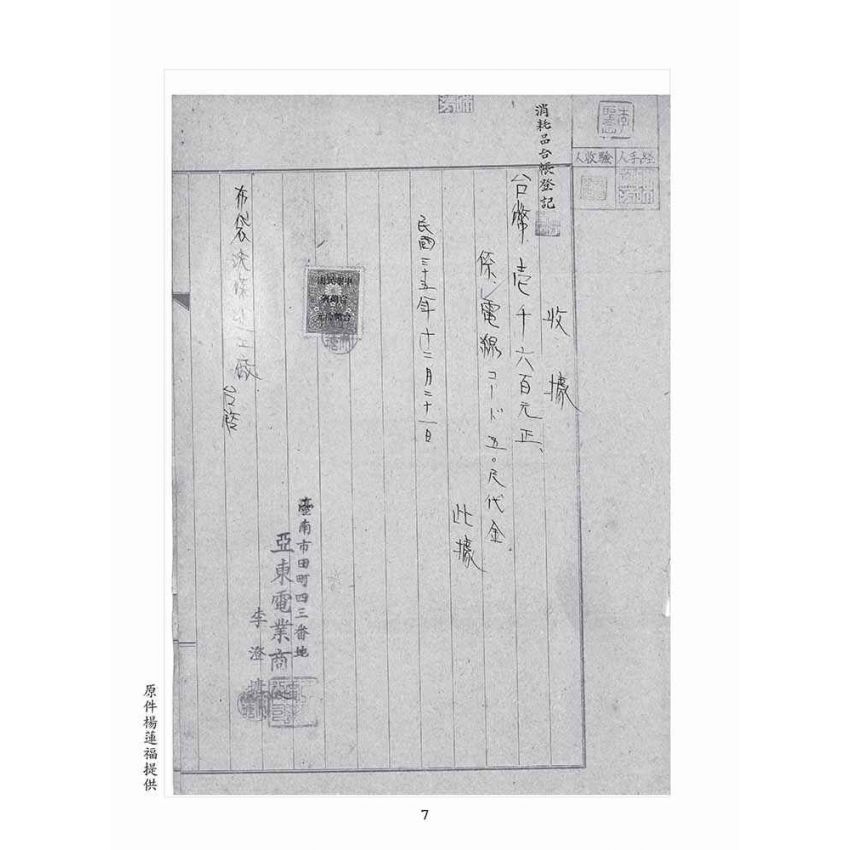 消耗品台帳登記
人手經 人收驗
收據
台幣壱千六百元正、
係電線コード五〇尺代金
此據
民國三十五年十二月二十一日
布袋洗滌
工廠 台啓
臺南市田町四三番地
亞東電業商
李澄
原件楊蓮福提供
7